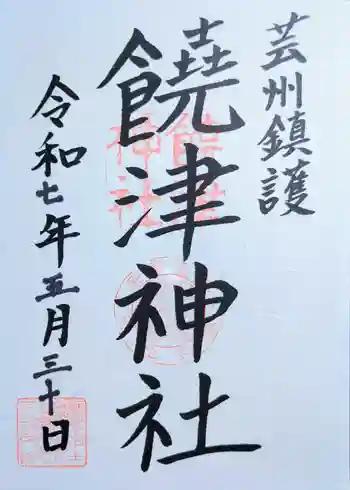 芸州鎮護
饒津神社
令和七年五月三十日